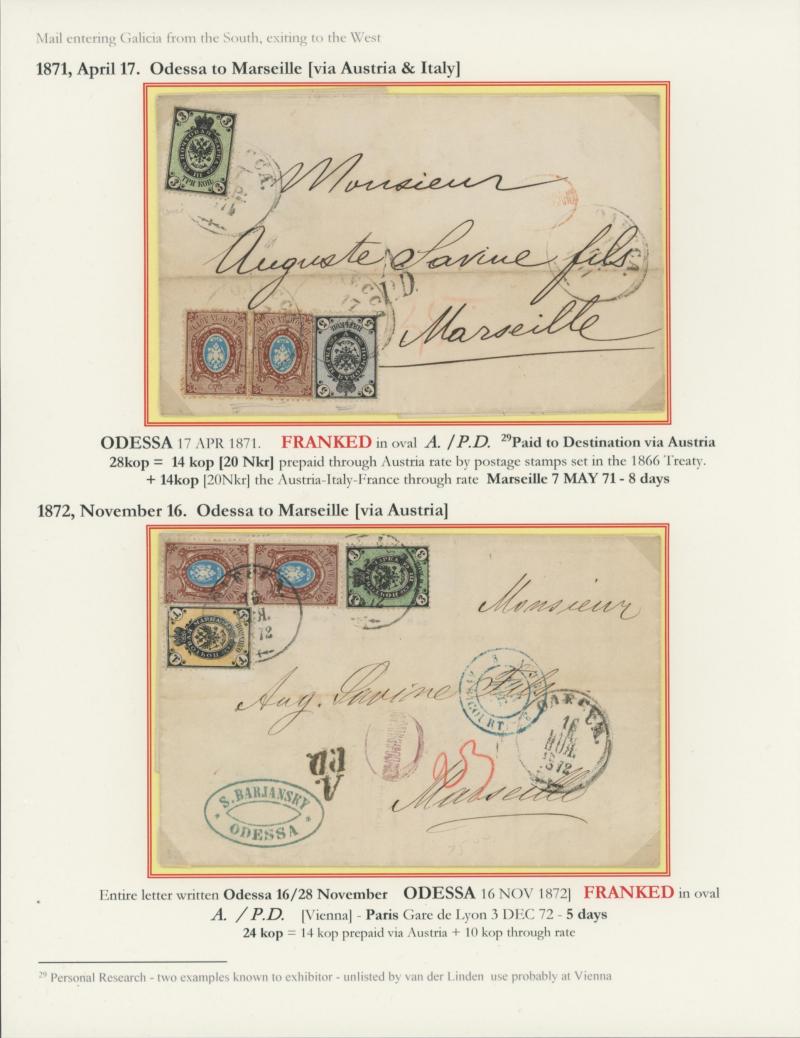 Mail entering Galicia from the South, exiting to the West
1871, April 17. Odessa to Marseille [via Austria & Italy]
3 3
ТРИ КОП.
3 3
Monsieur
Auguste Savine fils
ОДЕССА.
P.D.
ОДЕССА
17
Marseille
5 5
5 5
ODESSA 17 APR 1871. FRANKED in oval A. /P.D. ²⁹Paid to Destination via Austria
28kop = 14 kop [20 Nkr] prepaid through Austria rate by postage stamps set in the 1866 Treaty.
+ 14kop [20Nkr] the Austria-Italy-France through rate Marseille 7 MAY 71 - 8 days
1872, November 16. Odessa to Marseille [via Austria]
3 3
3 3
1 1
1 1
72
Monsieur
Aug. Savine Fils
ОДЕССА.
16
НОЯ.
1872
A.
P.D.
Marseille
S. BARJANSKY
* ODESSA *
Entire letter written Odessa 16/28 November ODESSA 16 NOV 1872] FRANKED in oval
A. / P.D. [Vienna] - Paris Gare de Lyon 3 DEC 72 - 5 days
24 kop = 14 kop prepaid via Austria + 10 kop through rate
²⁹ Personal Research - two examples known to exhibitor - unlisted by van der Linden use probably at Vienna